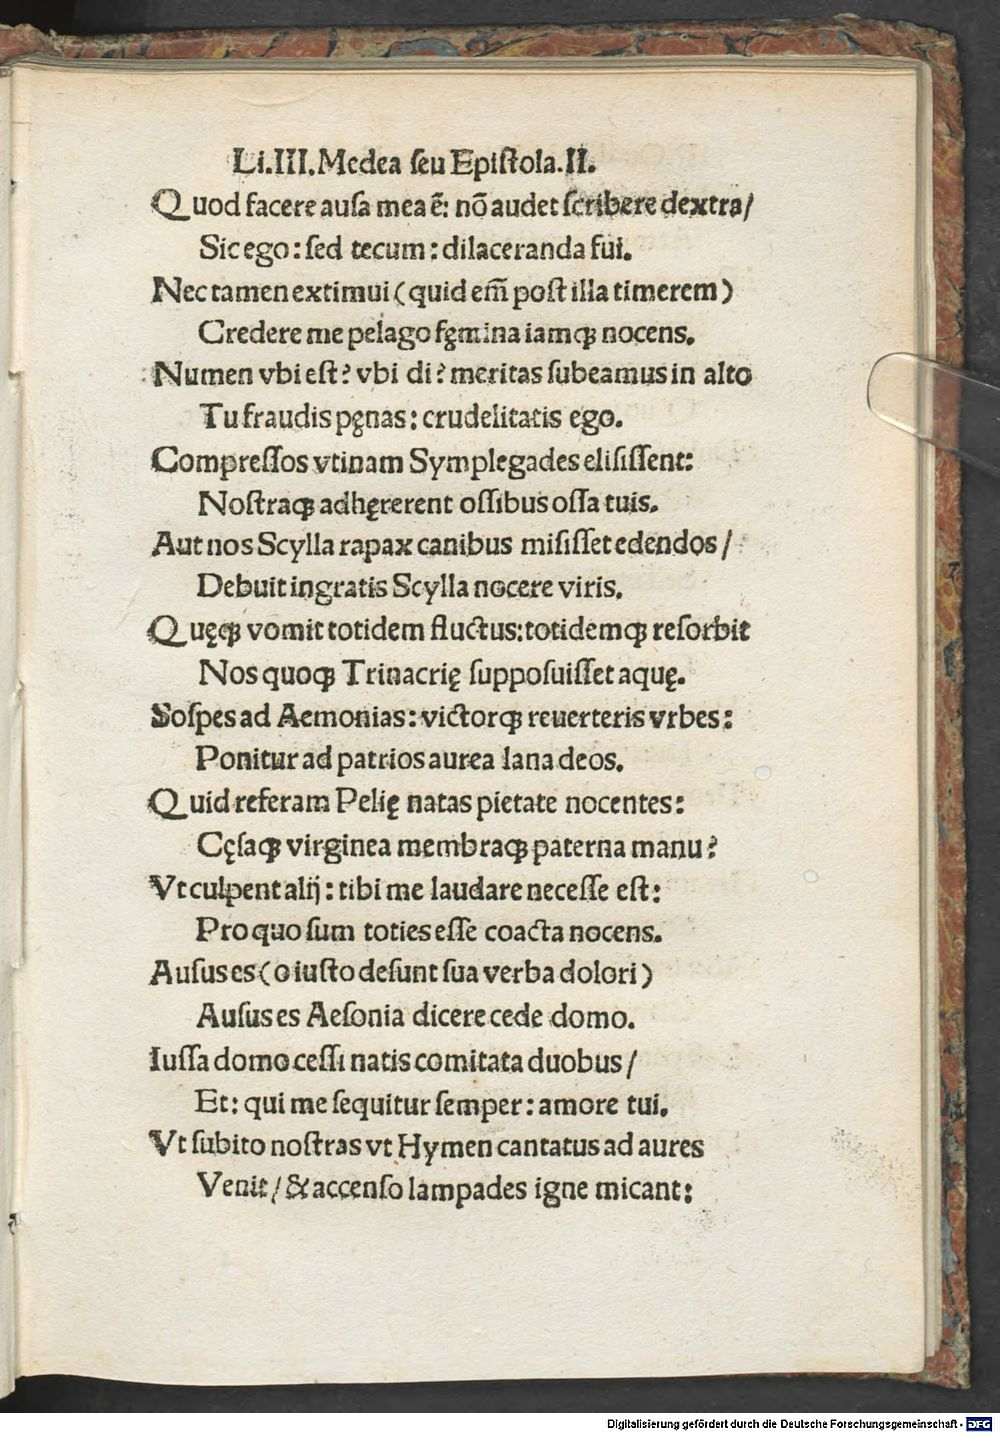 Li.III.Medea ſeu Epiſtola.II.
Quod facere auſa mea ẽ: nõ audet ſcribere dextra/
Sic ego: ſed tecum: dilaceranda fui.
Nec tamen extimui (quid em̃ poſt illa timerem)
Credere me pelago fęmina iamꝗ nocens.
Numen vbi eſt? vbi di? meritas ſubeamus in alto
Tu fraudis pęnas: crudelitatis ego.
Compreſſos vtinam Symplegades eliſiſſent:
Noſtraꝗ adhęrerent oſſibus oſſa tuis.
Aut nos Scylla rapax canibus miſiſſet edendos/
Debuit ingratis Scylla nocere viris.
Quęꝗ vomit totidem fluctus: totidemꝗ reſorbit
Nos quoꝗ Trinacrię ſuppoſuiſſet aquę.
Soſpes ad Aemonias: victorꝗ reuerteris vrbes:
Ponitur ad patrios aurea lana deos.
Quid referam Pelię natas pietate nocentes:
Cęſaꝗ virginea membraꝗ paterna manu?
Vt culpent alij: tibi me laudare neceſſe eſt:
Pro quo ſum toties eſſe coacta nocens.
Auſus es (o iuſto deſunt ſua verba dolori)
Auſus es Aeſonia dicere cede domo.
Iuſſa domo ceſſi natis comitata duobus/
Et: qui me ſequitur ſemper: amore tui.
Vt ſubito noſtras vt Hymen cantatus ad aures
Venit/ & accenſo lampades igne micant:
Digitalisierung gefördert durch die Deutsche Forschungsgemeinschaft - DFG